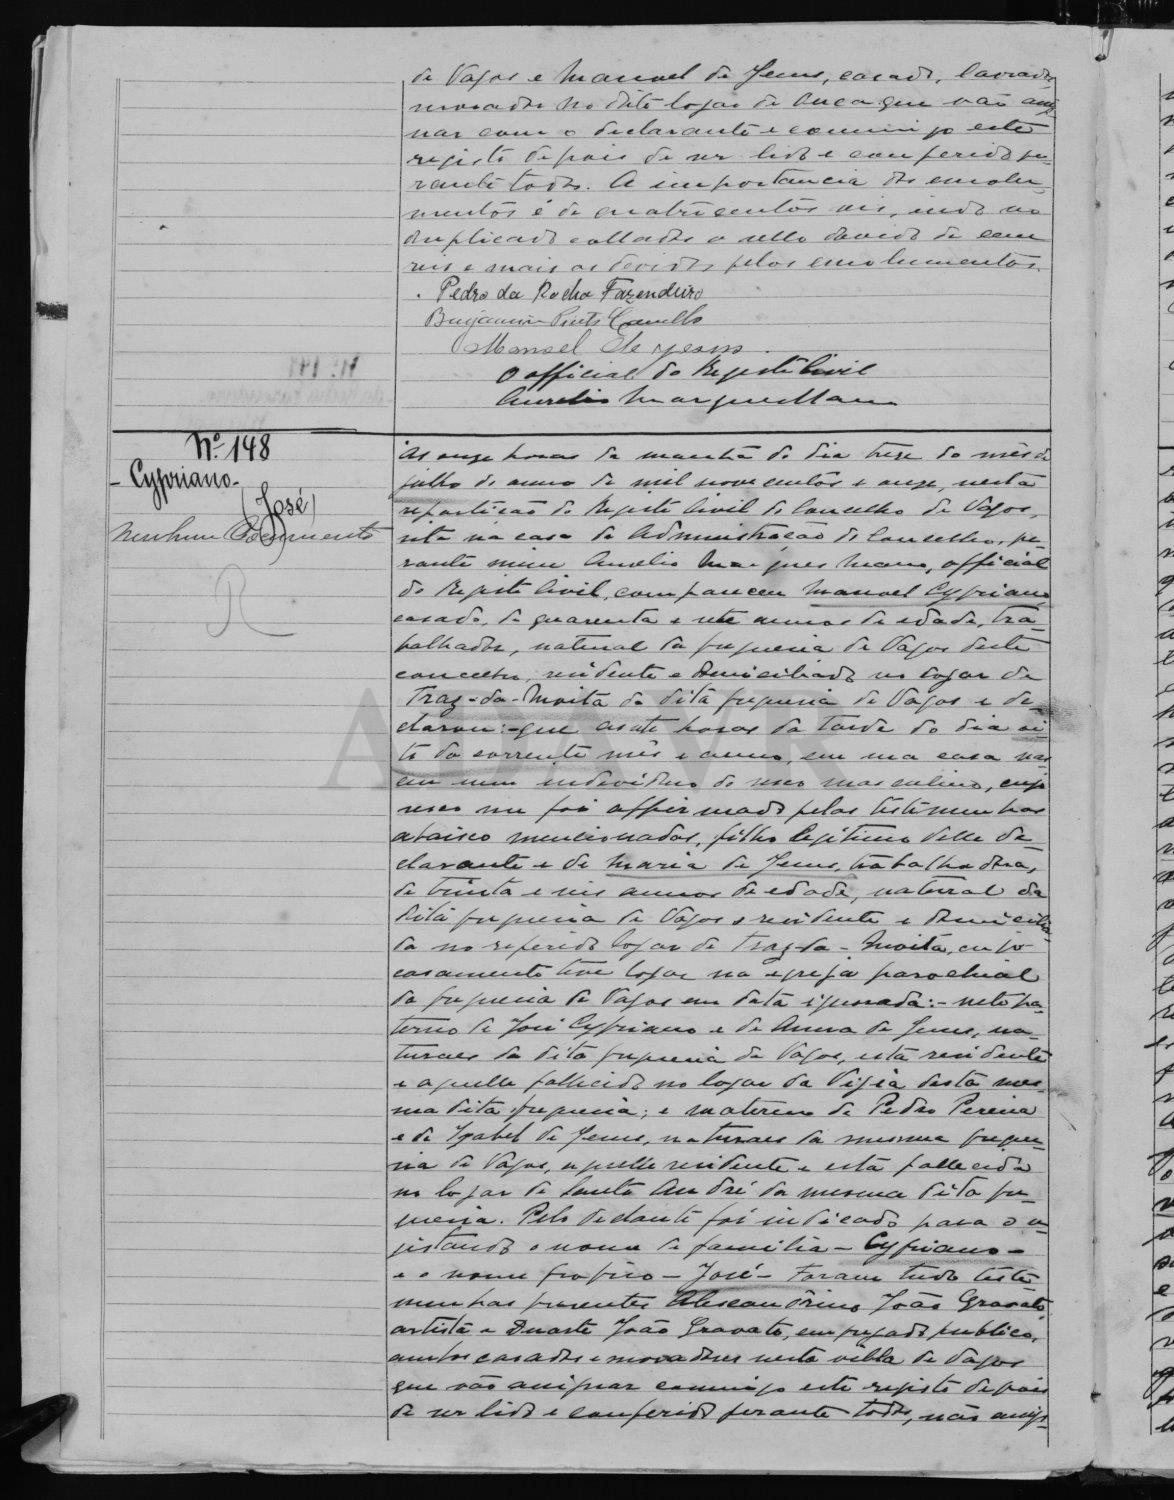 de Vagos e Manoel de Jesus, casado, lavrador
morador no dito logar de que vão assi-
nar com o declarante e commigo este
registo depois de ser lido e conferido pe-
rante todos. A importancia dos emolu-
mentos é de quatrocentos reis, indo no
duplicado collados o sello devido de cem
reis e mais os devidos pelos emolumentos.
Pedro da Rocha Fazendeiro
Benjamin Pinto Camello
Manoel de Jesus.
O official do Registo Civil
Aurelio Marques Mano
Nº 148
- Cypriano -
(José)
Nenhum Documento
R
Ás onze horas da manhã do dia treze do mês de
julho do anno de mil nove centos e onze, nesta
repartição do Registo Civil do Concelho de Vagos,
sita na casa da Administração do Concelho, pe-
rante mim Aurelio Marques Mano, official
do Registo Civil, compareceu Manoel Cypriano
casado, de quarenta e sete annos de edade, tra-
balhador, natural da freguesia de Vagos deste
concelho, residente e domiciliado no logar de
Traz-da-Moita da dita freguesia de Vagos e de-
clarou:-que ás sete horas da tarde do dia oi-
to do corrente mês e anno, em sua casa nas-
ceu um individuo do sexo masculino, cujo
sexo me foi affirmado pelas testemunhas
abaixo mencionadas, filho legitimo delle de-
clarante e de Maria de Jesus, trabalhadora,
de trinta e seis annos de edade, natural da
dita freguesia de Vagos e residente e domicilia-
da no referido logar de Traz-da-Moita, cujo
casamento teve logar na egreja parochial
da freguesia de Vagos em data ignorada:- neto pa-
terno de José Cypriano e de Anna de Jesus, na-
turaes da dita freguesia de Vagos, esta residente
e aquelle fallecido no logar da Vigia desta mes-
ma dita freguesia; e materno de Pedro Pereira
e de Izabel de Jesus, naturaes da mesma fregue-
sia de Vagos, aquelle residente e esta fallecida
no logar de Santo André da mesma dita fre-
guesia. Pelo declante foi indicado para o re-
gistando o nome de familia - Cypriano -
e o nome proprio - José - Foram tudo teste-
munhas presentes Alexandrino João Gravato
artista e Duarte João Gravato, empregado publico,
ambos casados e moradores nesta villa de Vagos
que vão assignar commigo este registo depois
de ser lido e conferido perante todos, não assig-